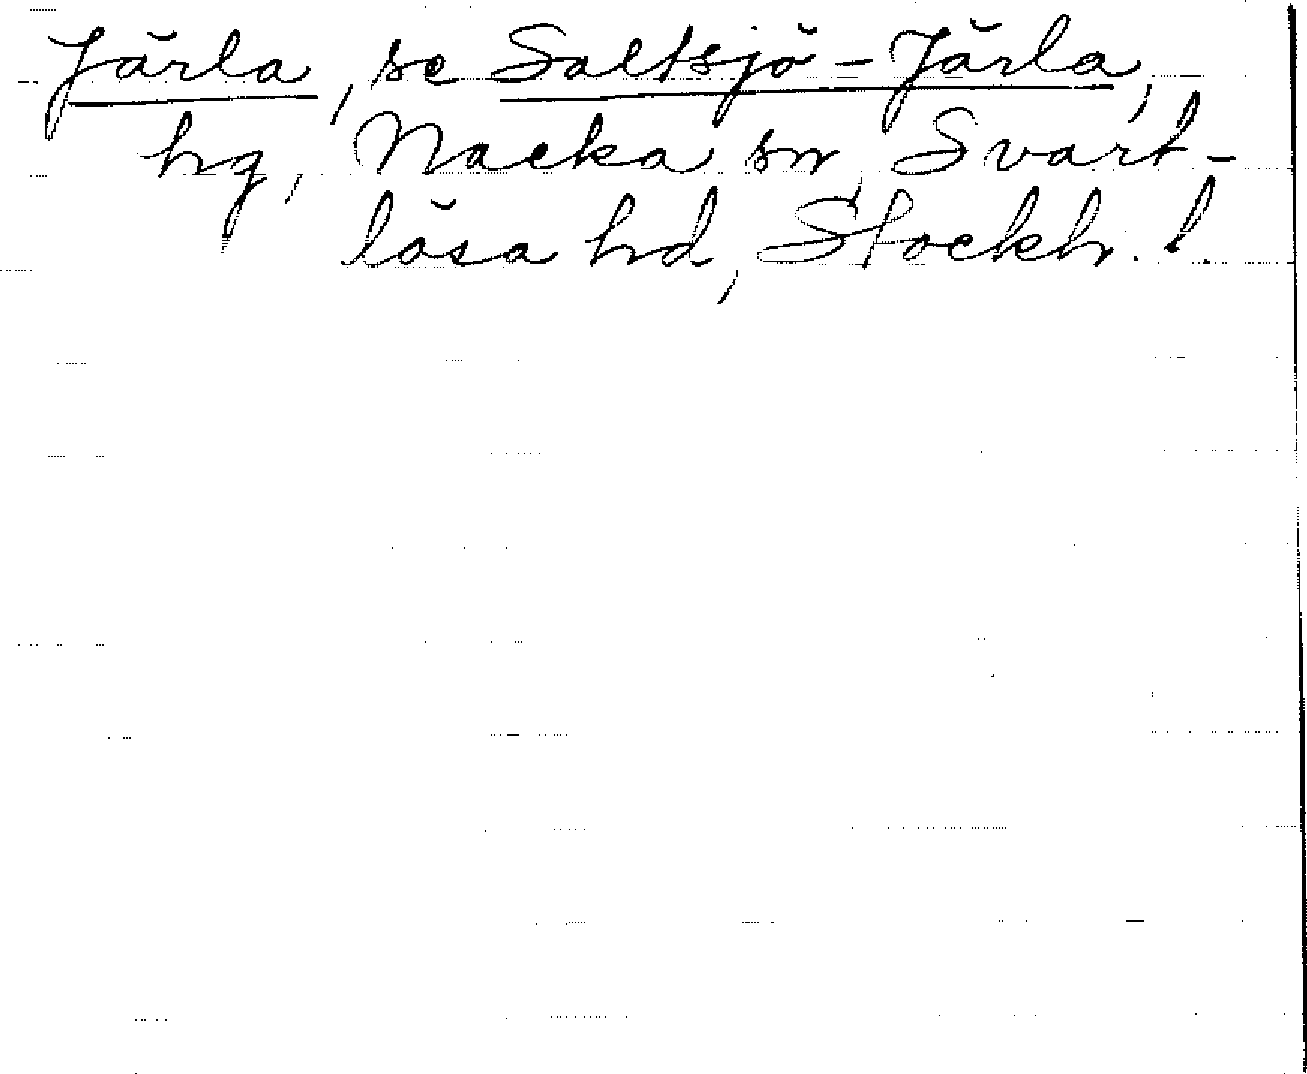 Järla, se Saltsjö-Järla,
hg, Nacka sn, Svart-
lösa hd, Stockh. l.